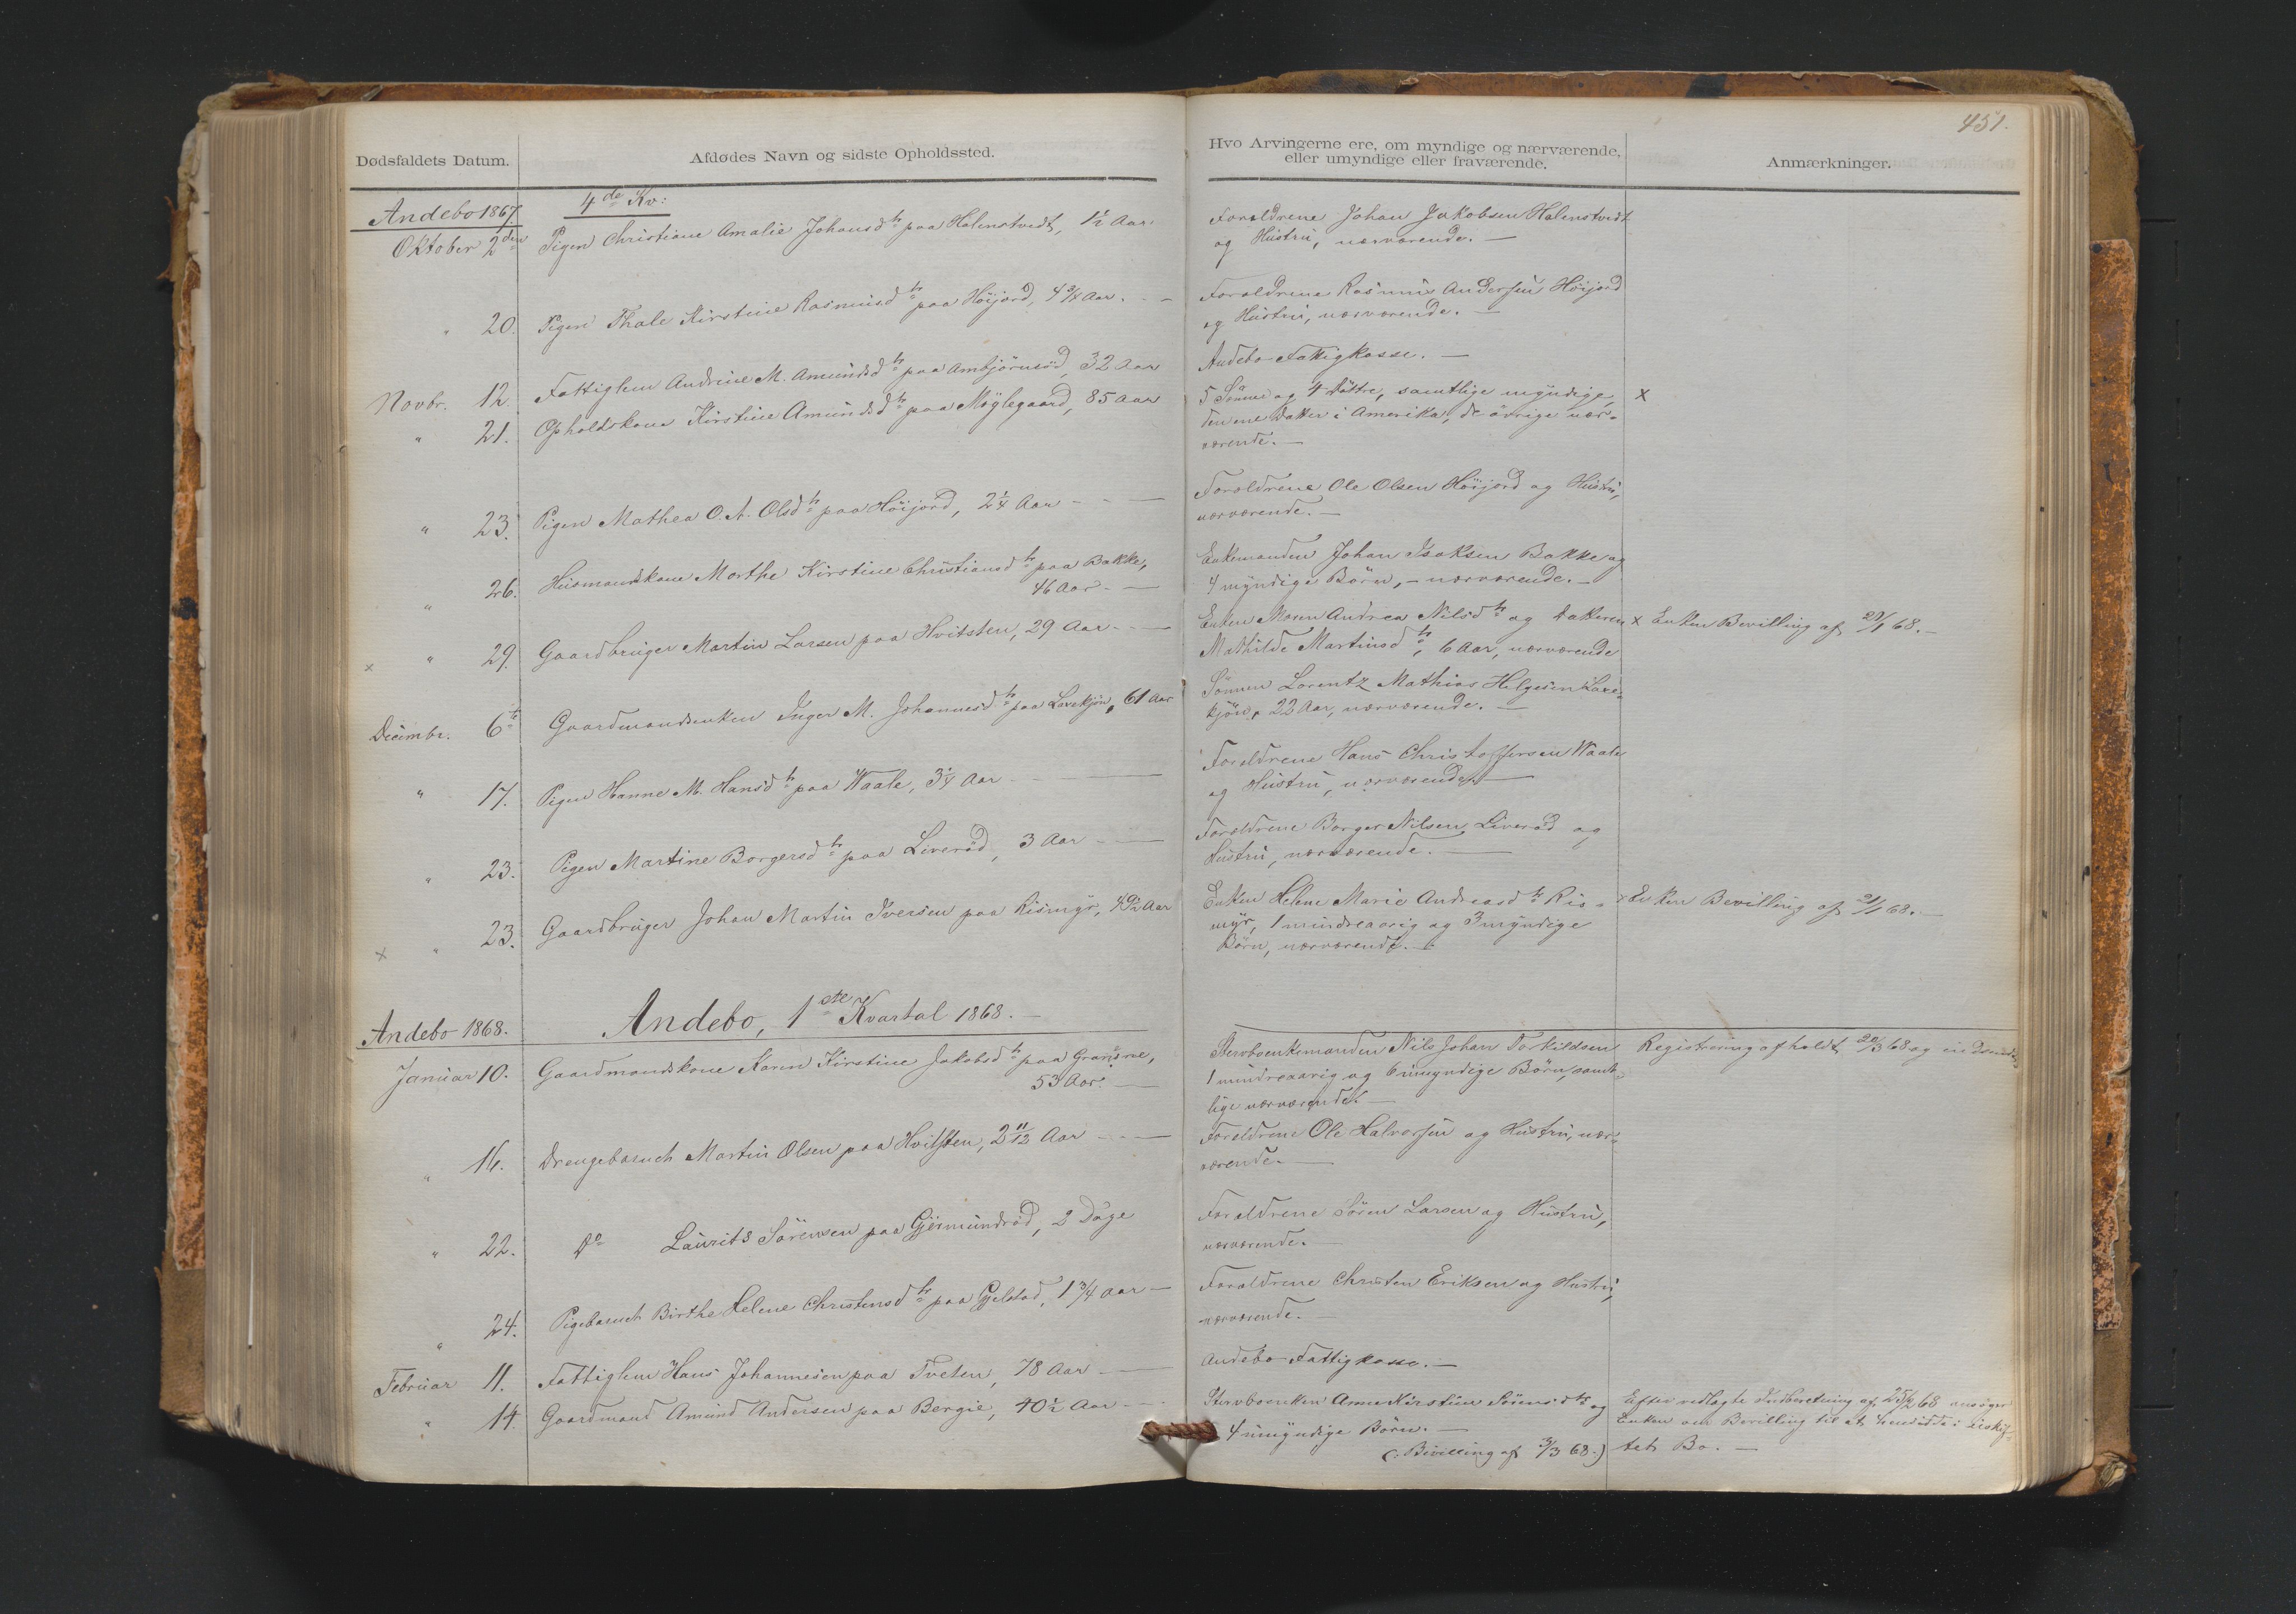 451.
Dødsfaldets Datum.
Afdødes Navn og sidste Opholdssted.
Hvo Arvingerne ere, om myndige og nærværende,
eller umyndige eller fraværende.
Anmærkninger.
Andebo 1867.
4de Kv:
Oktober 2den
Pigen Christiane Amalie Johansdtr paa Halenstvedt, 1½ Aar
Forældrene Johan Jakobsen Halenstvedt
og Hustru, nærværende. —
" 20.
Pigen Thale Kirstine Rasmusdtr paa Höijord, 4¾ Aar. - -
Forældrene Rasmus Andersen Höijord
og Hustru, nærværende. —
Novbr. 12.
Fattiglem Andrine M. Amundsdtr paa Ambjörnröd, 32 Aar
Andebo Fattigkasse. —
" 21.
Opholdskone Kirstine Amundsdtr paa Möÿlegaard, 85 Aar
5 Sönner og 4 Döttre, samtlige myndige,
den ene Datter i Amerika, de övrige nær-
værende. —
x
" 23.
Pigen Mathea O. A. Olsdtr paa Höijord, 2¼ Aar - - —
Forældrene Ole Olsen Höijord og Hustru,
nærværende. —
" 26.
Huusmandskone Marthe Kirstine Christiansdtr paa Bakke,
46 Aar - —
Enkemanden Johan Isaksen Bakke og
4 myndige Börn, - nærværende. —
x " 29.
Gaardbruger Martin Larsen paa Hvitsten, 29 Aar - - —
Enken Maren Andrea Nilsdtr og Datteren
Mathilde Martinsdtr, 6 Aar, nærværende
x Enken Bevilling af 29/1 68. —
Decimbr. 6te
Gaardmandsenken Inger M. Johannesdtr paa Lavekjön, 61 Aar
Sönnen Lorentz Mathias Helgesen Lave-
kjön, 22 Aar, nærværende. —
" 17.
Pigen Hanne M. Hansdtr paa Waale, 3¼ Aar - - —
Forældrene Hans Christoffersen Waale
og Hustru, nærværende. —
" 23.
Pigen Martine Borgersdtr paa Liveröd, 3 Aar - - —
Forældrene Borger Nilsen Liveröd og
Hustru, nærværende. —
x " 23.
Gaardbruger Johan Martin Iversen paa Rismÿr, 49½ Aar
Enken Helene Marie Andreasdtr Ris-
mÿr, 1 mindreaarig og 3 myndige
Börn, nærværende. —
x Enken Bevilling af 21/1 68. —
Andebo 1868.
Andebo, 1ste Kvartal 1868. —
Januar 10.
Gaardmandskone Karen Kirstine Jakobsdtr paa Granerne,
53 Aar. —
Stervboenkemanden Nils Johan Torkildsen
1 mindreaarig og 6 umyndige Börn, samt-
lige nærværende. —
Registrering afholdt 20/3 68 og
" 16.
Drengebarnet Martin Olsen paa Hvitsten, 2 11/12 Aar - - —
Forældrene Ole Halvorsen og Hustru, nær-
værende. —
" 22.
Do Laurits Sörensen paa Gjermundröd, 2 Dage
Forældrene Sören Larsen og Hustru,
nærværende. —
" 24.
Pigebarnet Birthe Helene Christensdtr paa Gjelstad, 1¾ Aar —
Forældrene Christen Eriksen og Hustru,
nærværende. —
Februar 11.
Fattiglem Hans Johannesen paa Tveten, 78 Aar —
Andebo Fattigkasse. —
" 14.
Gaardmand Amund Andersen paa Bergie, 40½ Aar - -
Stervboenken Anne Kirstine Sörensdtr og
4 umyndige Börn. —
(: Bevilling af 3/3 68.)
Efter vedlagte Indberetning af 25/2 68 ansöger
Enken om Bevilling til at hensidde i uskif-
tet Bo. —